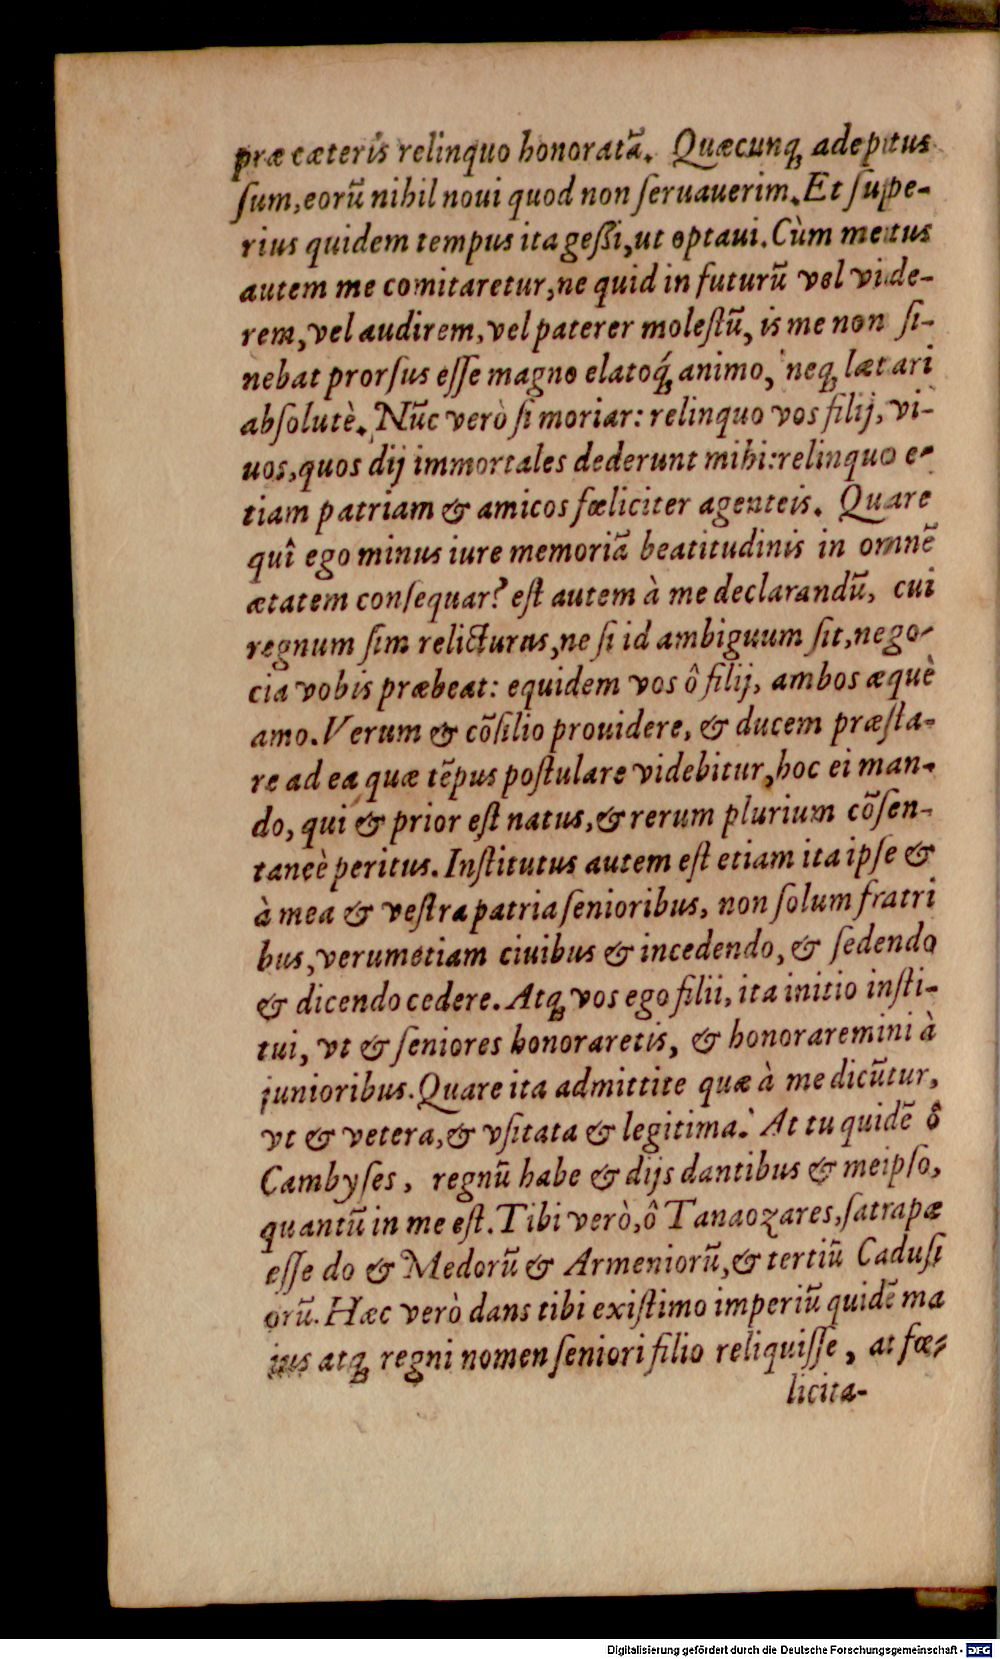 præ cæteris relinquo honoratā. Quæcunq; adeptus
ſum, eorū nihil noui quod non ſeruauerim. Et ſupe-
rius quidem tempus ita geſſi, ut optaui. Cùm metus
autem me comitaretur, ne quid in futurū vel vide-
rem, vel audirem, vel paterer moleſtū, is me non ſi-
nebat prorſus eſſe magno elatoq́; animo, neq; lætari
abſolutè. Nūc verò ſi moriar: relinquo vos filij, vi-
uos, quos dij immortales dederunt mihi: relinquo e-
tiam patriam & amicos fœliciter agenteis. Quare
quî ego minus iure memoriā beatitudinis in omnē
ætatem conſequar? eſt autem à me declarandū, cui
regnum ſim relicturus, ne ſi id ambiguum ſit, nego-
cia vobis præbeat: equidem vos ô filij, ambos æquè
amo. Verum & cōſilio prouidere, & ducem præſta-
re ad ea quæ tēpus poſtulare videbitur, hoc ei man-
do, qui & prior eſt natus, & rerum plurium cōſen-
taneè peritus. Inſtitutus autem eſt etiam ita ipſe &
à mea & veſtra patria ſenioribus, non ſolum fratri
bus, verumetiam ciuibus & incedendo, & ſedendo
& dicendo cedere. Atq; vos ego filii, ita initio inſti-
tui, vt & ſeniores honoraretis, & honoraremini à
junioribus. Quare ita admittite quæ à me dicūtur,
vt & vetera, & vſitata & legitima. At tu quidē ô
Cambyſes, regnū habe & dijs dantibus & meipſo,
quantū in me eſt. Tibi verò, ô Tanaozares, ſatrapæ
eſſe do & Medorū & Armeniorū, & tertiū Caduſi
orū. Hæc verò dans tibi exiſtimo imperiū quidē ma
ius atq; regni nomen ſeniori filio reliquiſſe, at fœ-
licita-
Digitalisierung gefördert durch die Deutsche Forschungsgemeinschaft - DFG